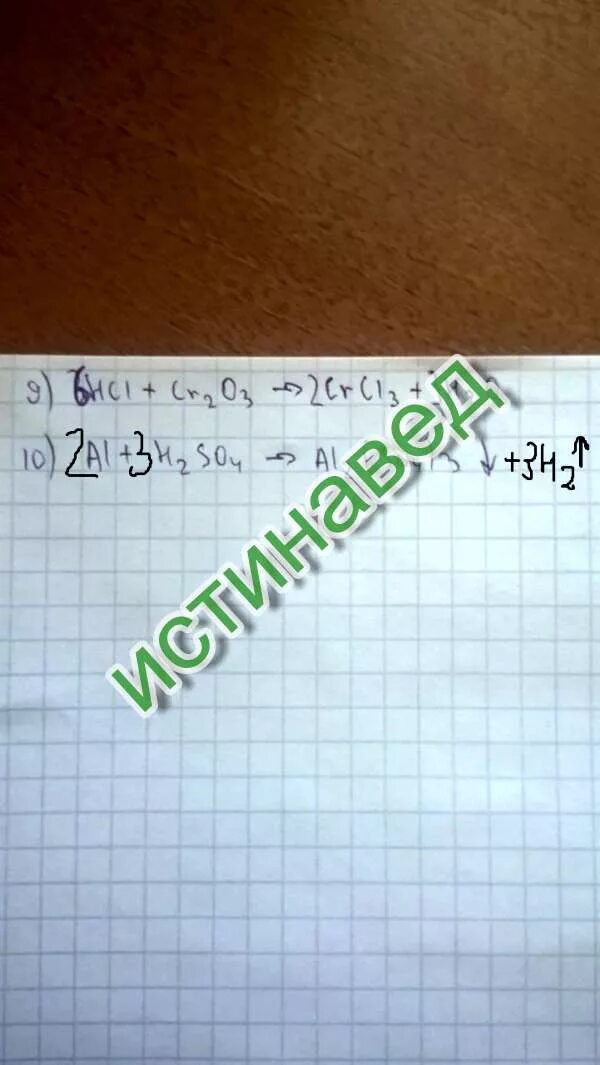 9) 6HCl + Cr2O3 → 2CrCl3 +
10) 2Al + 3H2SO4 → Al ↓ + 3H2↑
ИСТИНАВЕД